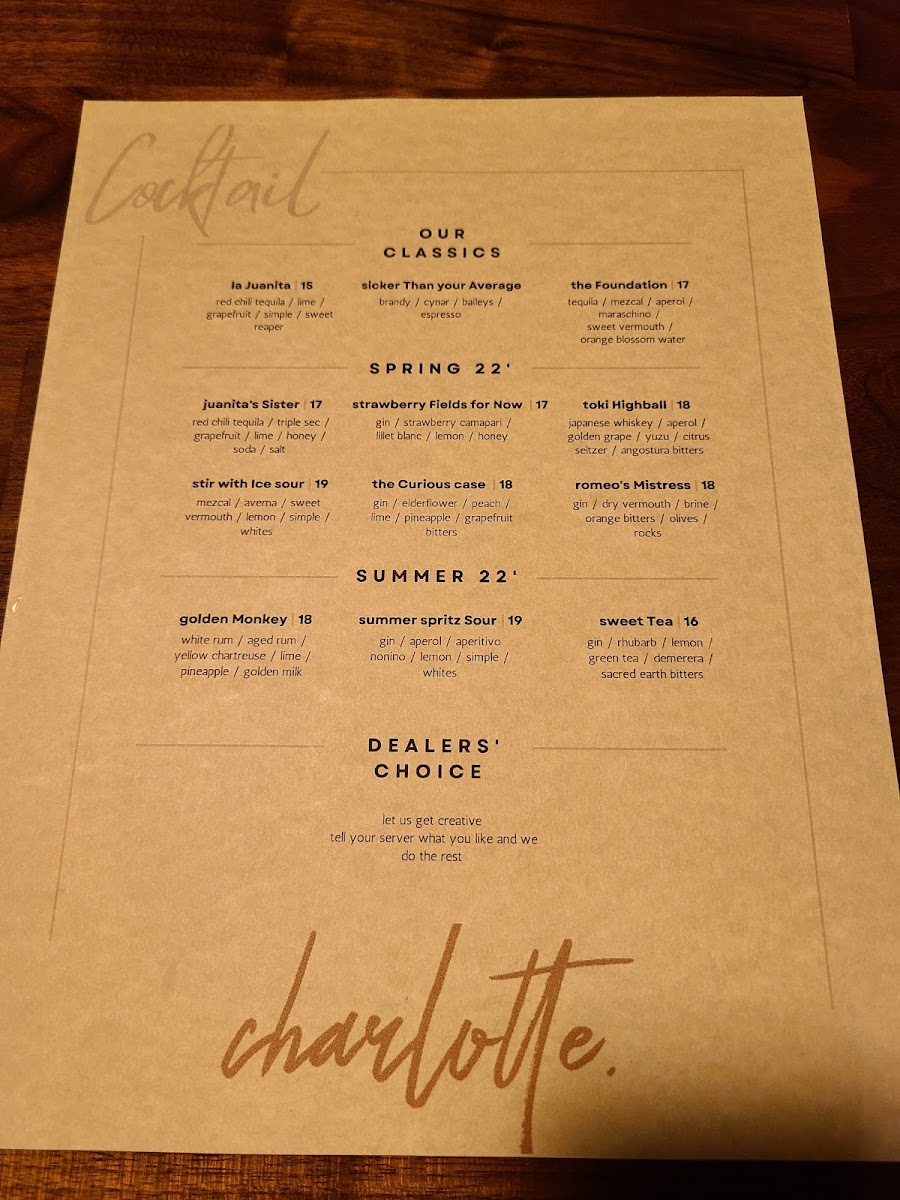 Cocktail
OUR
CLASSICS
la Juanita | 15
red chili tequila / lime /
grapefruit / simple / sweet
reaper
sicker Than your Average
brandy / cynar / baileys /
espresso
the Foundation | 17
tequila / mezcal / aperol /
maraschino /
sweet vermouth /
orange blossom water
SPRING 22'
juanita's Sister | 17
red chili tequila / triple sec /
grapefruit / lime / honey /
soda / salt
strawberry Fields for Now | 17
gin / strawberry camapari /
lillet blanc / lemon / honey
toki Highball | 18
japanese whiskey / aperol /
golden grape / yuzu / citrus
seltzer / angostura bitters
stir with Ice sour | 19
mezcal / averna / sweet
vermouth / lemon / simple /
whites
the Curious case | 18
gin / elderflower / peach /
lime / pineapple / grapefruit
bitters
romeo's Mistress | 18
gin / dry vermouth / brine /
orange bitters / olives /
rocks
SUMMER 22'
golden Monkey | 18
white rum / aged rum /
yellow chartreuse / lime /
pineapple / golden milk
summer spritz Sour | 19
gin / aperol / aperitivo
nonino / lemon / simple /
whites
sweet Tea | 16
gin / rhubarb / lemon /
green tea / demerera /
sacred earth bitters
DEALERS'
CHOICE
let us get creative
tell your server what you like and we
do the rest
charlotte.